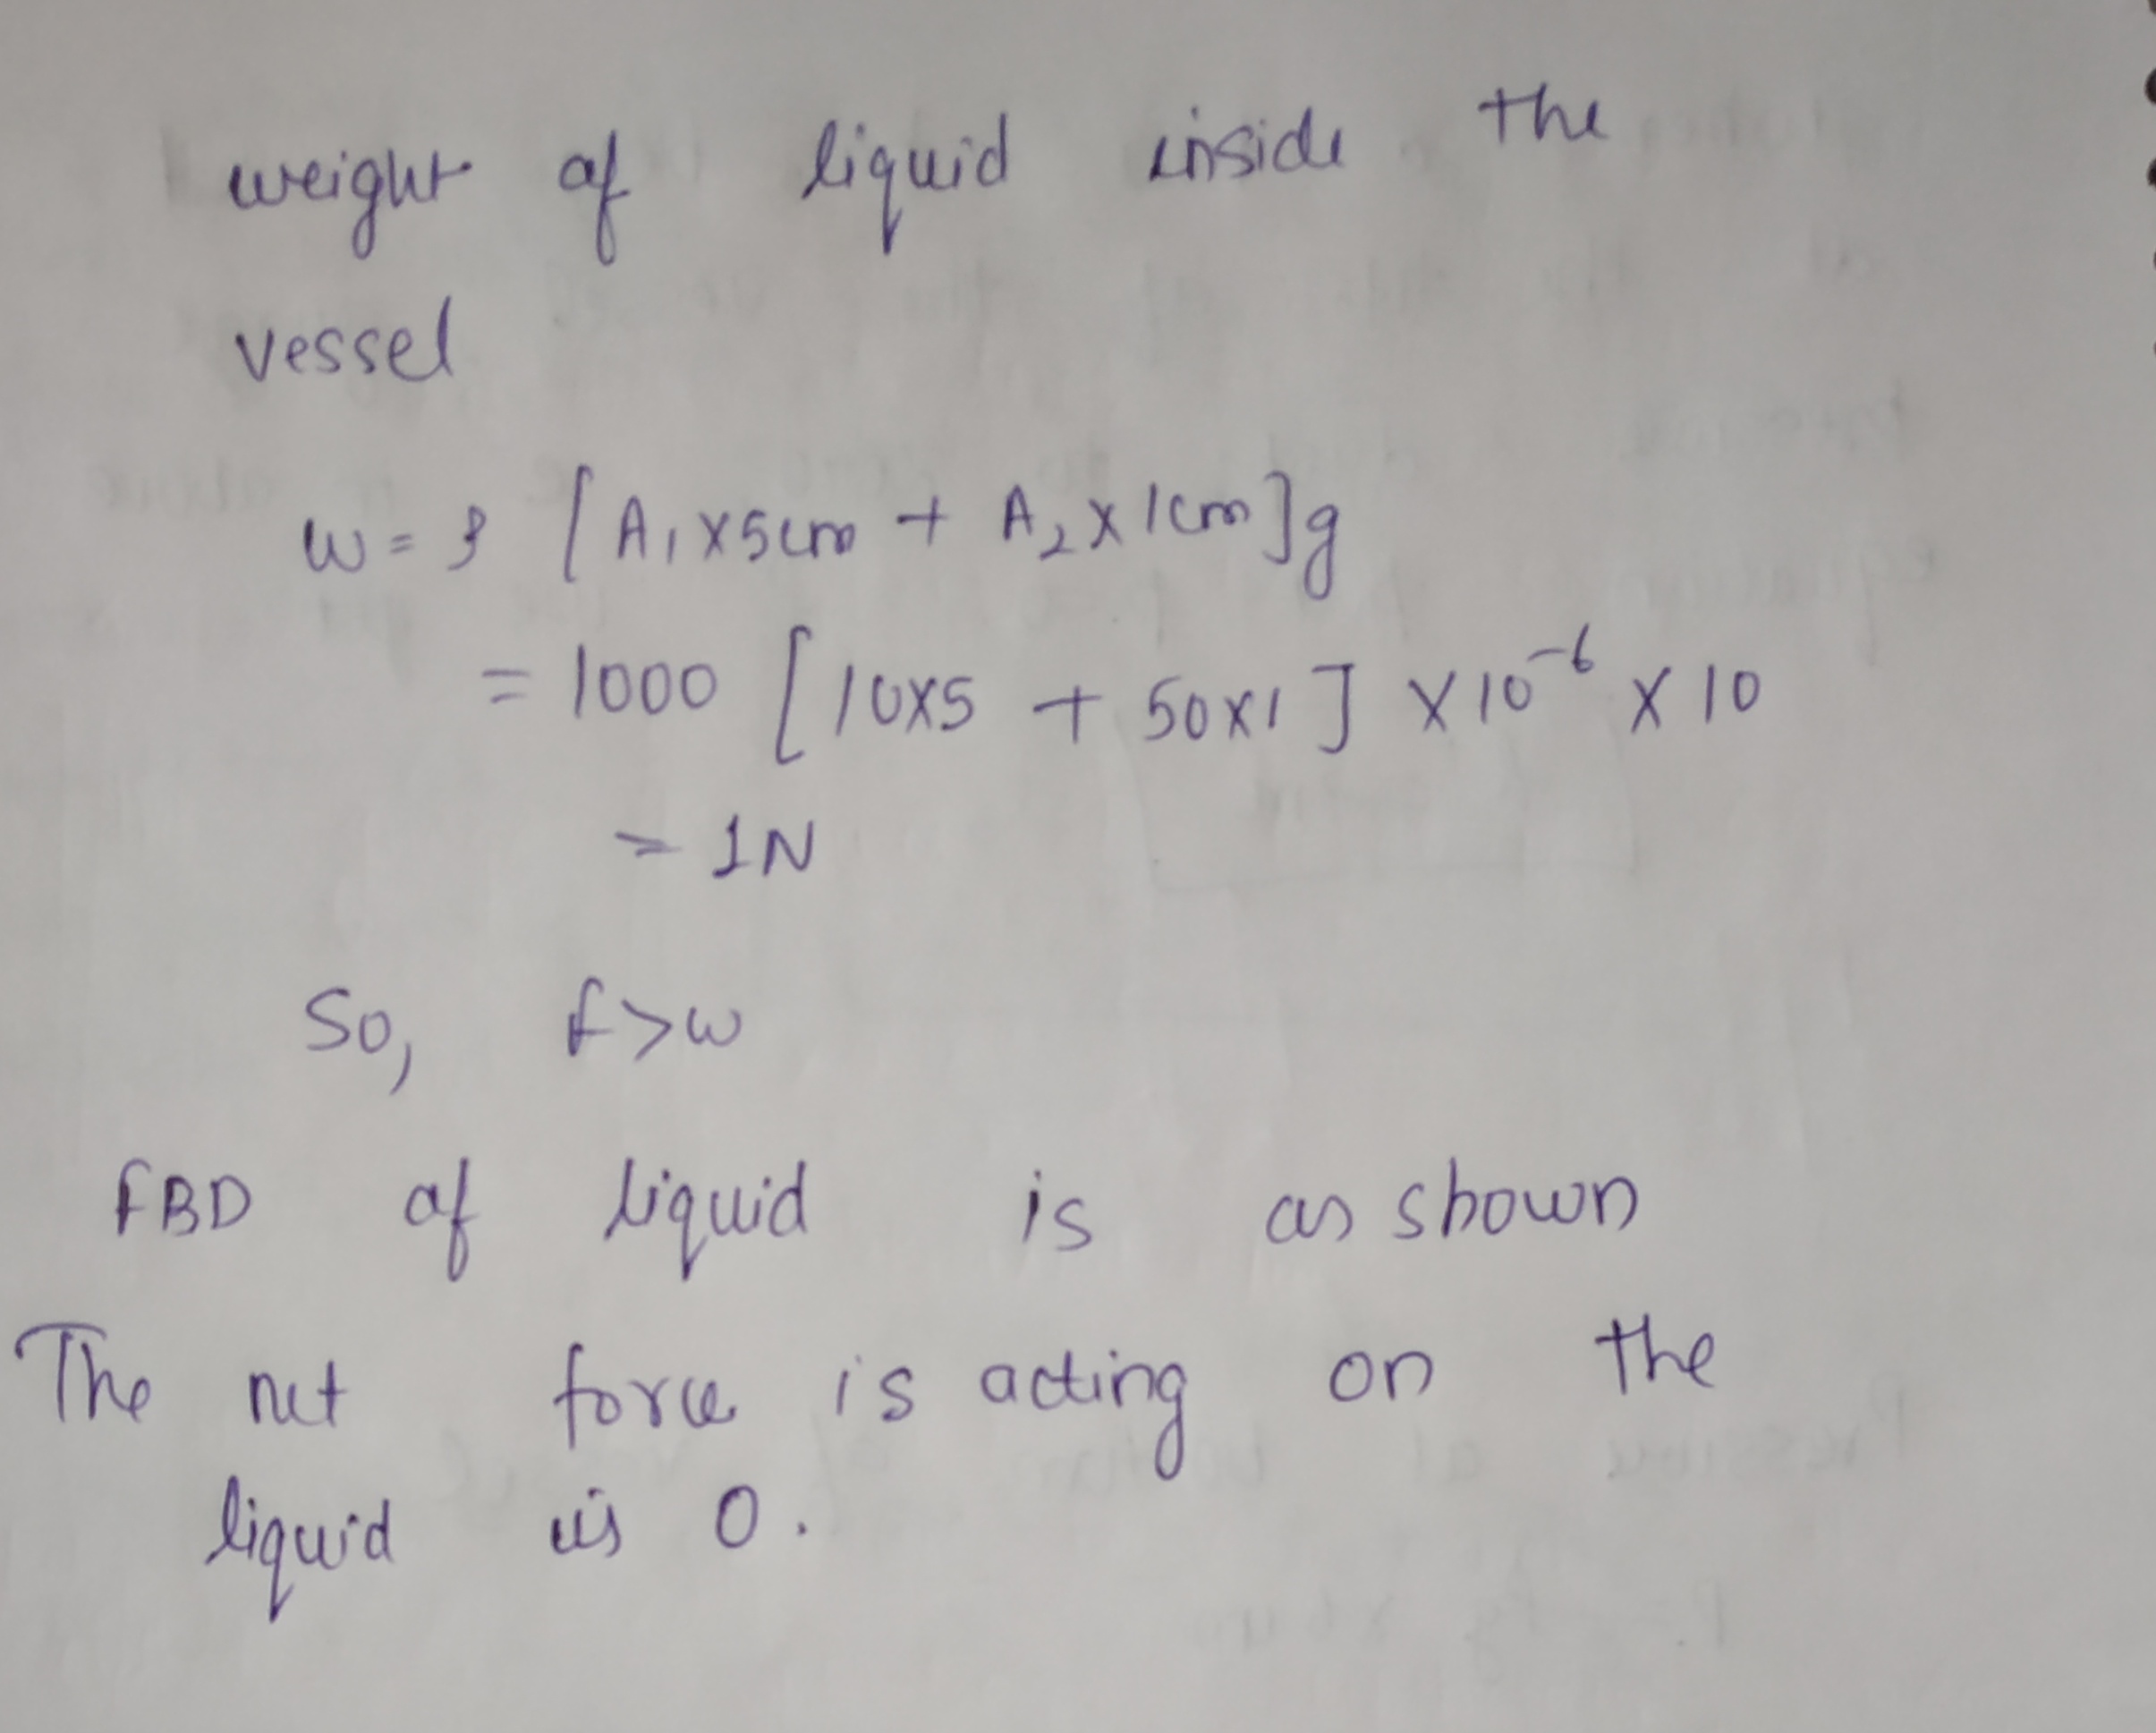 weight of liquid inside the
vessel
w = ρ [A₁ x 5cm + A₂ x 1cm]g
= 1000 [10x5 + 50x1] x 10⁻⁶ x 10
= 1N
So, f>w
FBD of liquid is as shown
The net force is acting on the
liquid is 0.